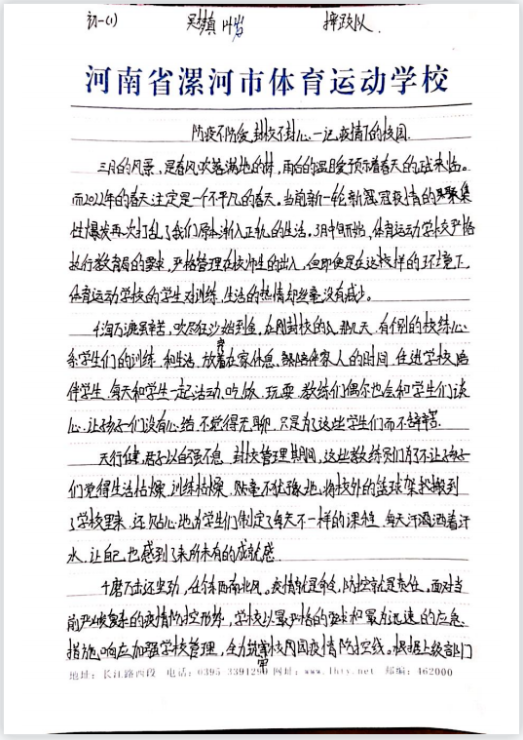 初一(1) 吴梦真 14岁 摔跤队
河南省漯河市体育运动学校
防疫不防爱,封校不封心—记疫情下的校园.
三月的风景,是春风吹落满地的,雨后的温暖预示着春天的到来临。
而2022年的春天注定是一个不平凡的春天。当前新一轮新冠疫情的聚集
性爆发再次打乱了我们原本渐入正轨的生活。3月中旬开始,体育运动学校严格
执行教育局的要求,严格管理在校师生的出入,但即使是在这样的环境下,
体育运动学校的学生对训练,生活的热情却丝毫没有减少。
千淘万漉虽辛苦,吹尽狂沙始到金,在刚封校的那几天,有个别的教练心
系学生们的训练和生活,放着在家休息,陪伴家人的时间,住进学校陪
伴学生,每天和学生一起活动、吃饭、玩耍,教练们偶尔也会和学生们谈
心,让孩子们没有心结,不觉得无聊,只是为了这些学生们而不辞辛苦.
天行健,君子以自强不息,封校管理期间,这些教练员们为了不让孩子
们觉得生活枯燥,训练枯燥,丝毫不犹豫地,将校外的篮球架搬到
了学校里来,还贴心地为学生们制定了每天不一样的课程,每天汗洒洒着汗
水,让自己也感到了未所未有的成就感.
千磨万击还坚劲,任尔东西南北风。疫情就是命令,防控就是责任,面对当
前严峻复杂的疫情防控形势,学校以最严格的要求和最为迅速的应急
措施,响应加强学校管理,全力筑牢校园疫情防控线。根据上级部门
地址:长江路西段 电话:0395 3391290 网址:www.lhty.net 邮编:462000